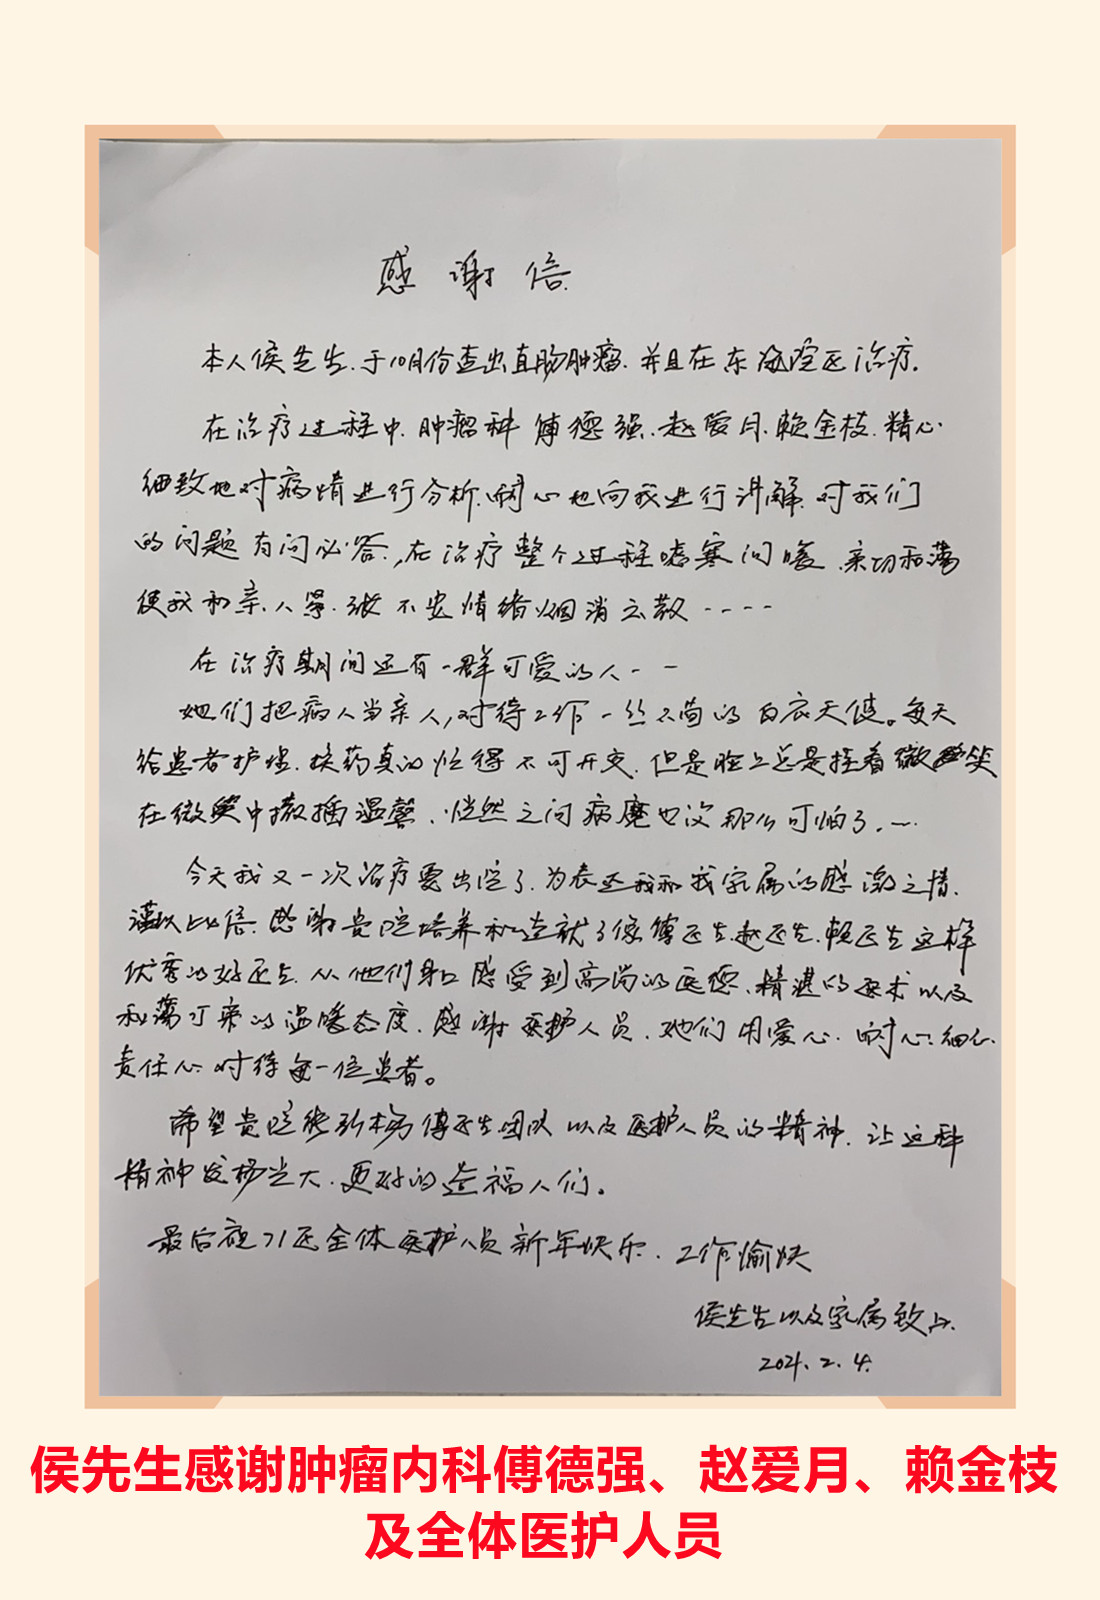 感谢信
本人侯先生.于10月份查出直肠肿瘤.并且在东院区治疗.
在治疗过程中.肿瘤科 傅德强.赵爱月.赖金枝.精心
细致地对病情进行分析.耐心地向我进行讲解.对我们
的问题有问必答.,在治疗整个过程嘘寒问暖.亲切和蔼
使我和亲人紧.张不安情绪烟消云散----
在治疗期间还有一群可爱的人--
她们把病人当亲人,对待工作一丝不苟的白衣天使。每天
给患者护理.换药真的忙得不可开交.但是脸上总是挂着微笑
在微笑中散播温馨.恍然之间病魔也没那么可怕了.--
今天我又一次治疗要出院了.为表达我和我家属的感激之情.
谨以此信.感谢贵院培养和造就了像傅医生.赵医生.赖医生这样
优秀的好医生.从他们身上感受到高尚的医德.精湛的医术以及
和蔼可亲的温暖态度.感谢医护人员.她们用爱心.耐心.细心.
责任心对待每一位患者。
希望贵院能弘扬傅医生团队以及医护人员的精神.让这种
精神发扬光大.更好的造福人们。
最后祝71区全体医护人员新年快乐.工作愉快
侯先生以及家属致上.
2021.2.4.
侯先生感谢肿瘤内科傅德强、赵爱月、赖金枝
及全体医护人员